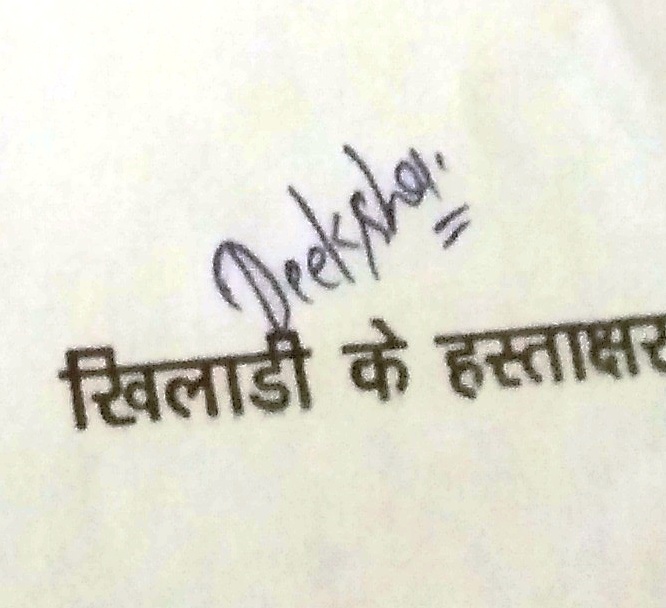 Deeksha.
खिलाडी के हस्ताक्षर